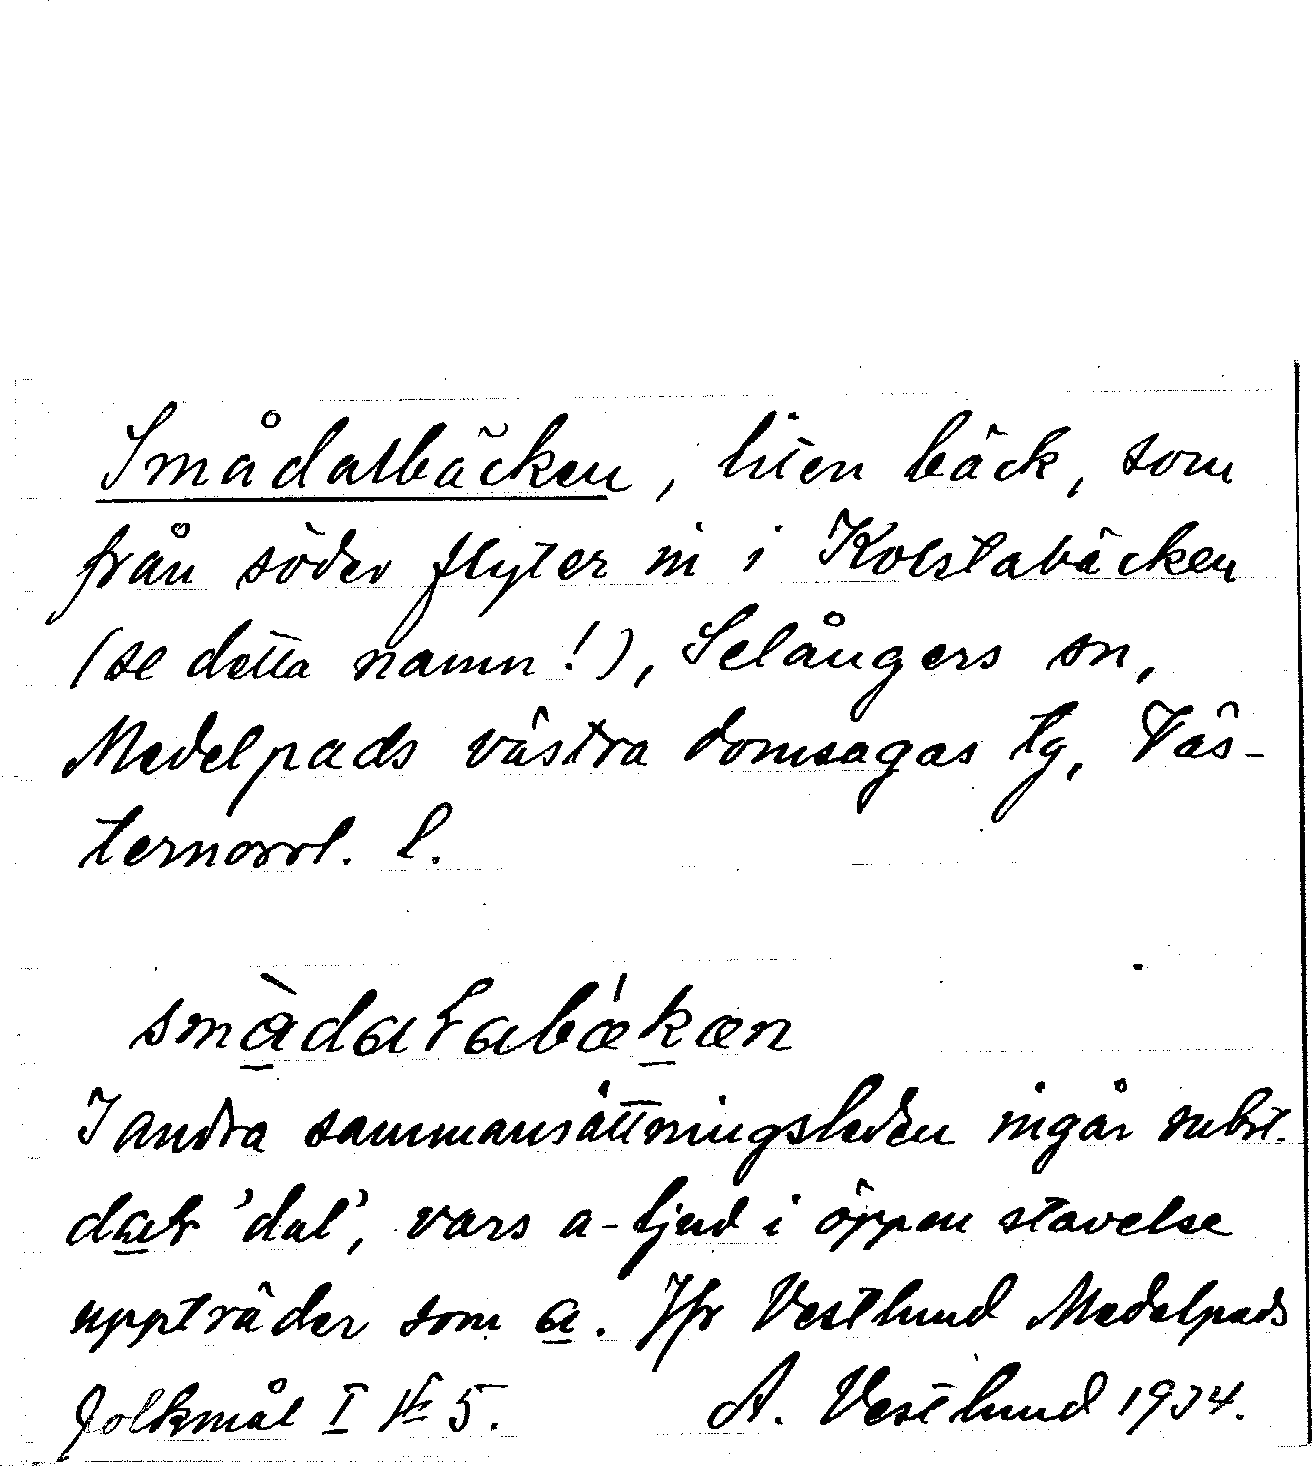 Smådalbäcken, liten bäck, som
från söder flyter in i Kolstabäcken
(se detta namn!), Selångers sn,
Medelpads västra domsagas tg, Väs-
ternorrl. l.
I andra sammansättningsleden ingår subst.
'dal', vars a-ljud i öppen stavelse
uppträder som a. Jfr Vestlund Medelpads
folkmål I 5.
A. Vestlund 1934.